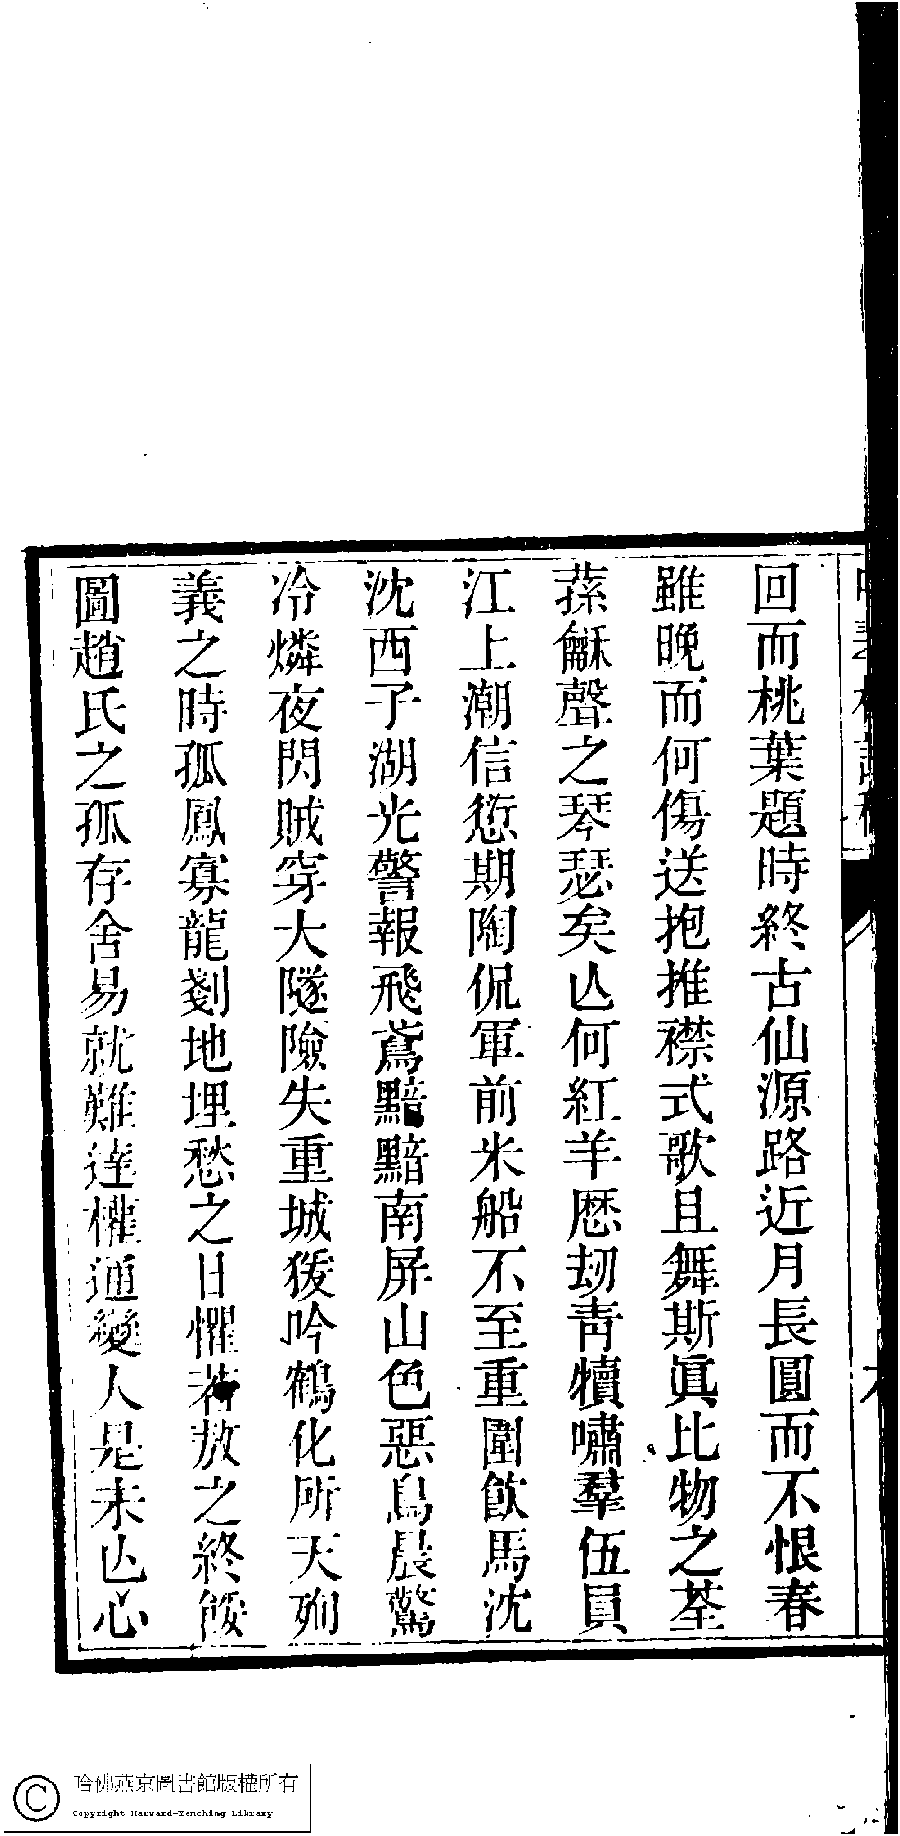 回而桃葉題時終古仙源路近月長圓而不恨春
雖晚而何傷送抱推襟式歌且舞斯眞比物之荃
蓀龢聲之琴瑟矣亾何紅羊厯刼靑犢嘯羣伍員
江上潮信愆期陶侃軍前米船不至重圍飮馬沈
沈西子湖光警報飛鳶黯黯南屏山色惡鳥晨驚
冷燐夜閃賊穿大隧險失重城猨吟鶴化所天殉
義之時孤鳳寡龍剗地埋愁之日懼若敖之終餒
圖趙氏之孤存舍易就難達權通變人是未亾心
哈佛燕京圖書館版權所有
Copyright Harvard-Yenching Library